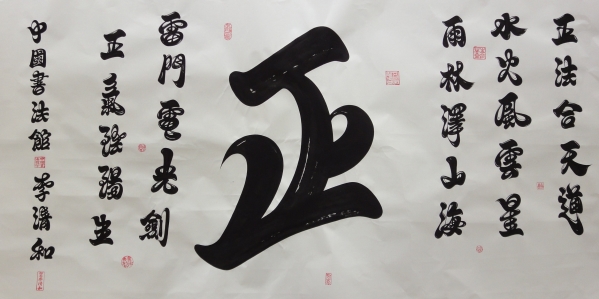 正法合天道
水火風雲星
雨林澤山海
正
雷門電光劍
正氣陰陽生
中國書法館 李清和